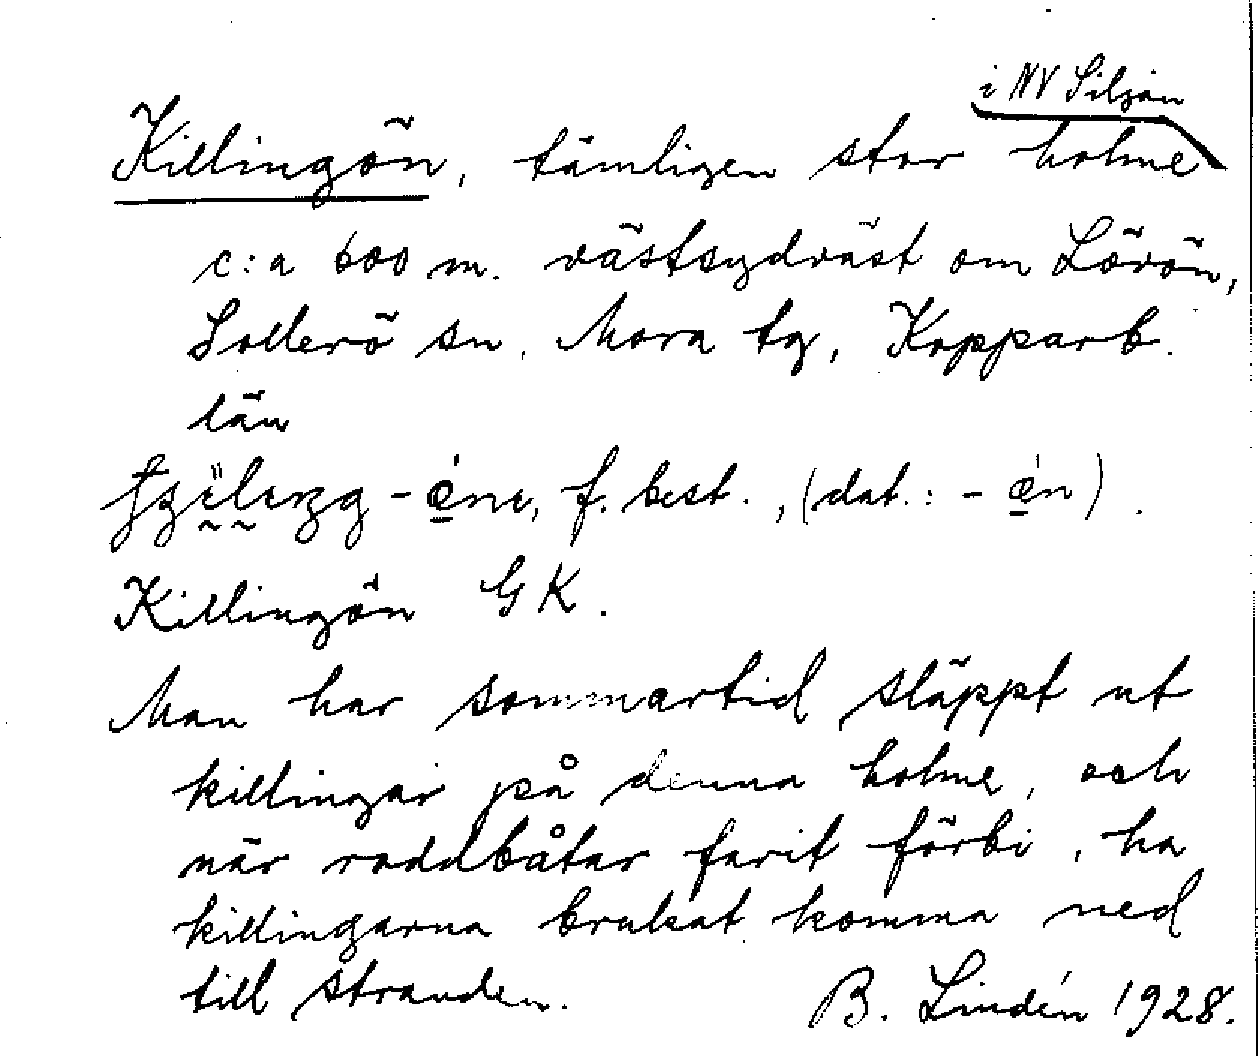 i NV Siljan
Killingön, tämligen stor holme
c:a 600 m. västsydväst om Lövön,
Sollerö sn, Mora tg, Kopparb.
län
f. best., (dat.: - én).
Killingön GK.
Man har sommartid släppt ut
killingar på denna holme, och
när roddbåtar farit förbi, ha
killingarna brukat komma ned
till stranden. B. Lindén 1928.